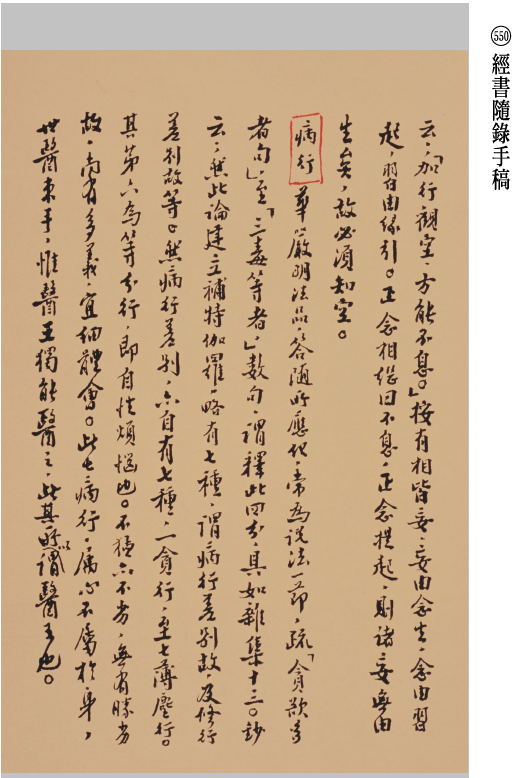 550 經書隨錄手稿
云,「加行觀空,方能不息。」按有相皆妄,妄由念生,念由習
起,習由緣引。正念相繼曰不息,正念提起,則諸妄無由
生矣,故必須知空。
病行 華嚴明法品,答隨所應化,常為說法一節,疏「貪欲多
者句」至「三毒等者」數句,謂釋此四分,具如雜集十三。鈔
云,然此論建立補特伽羅,略有七種,謂病行差別故,及修行
差別故等。然病行差別,亦自有七種,一貪行,至七薄塵行。
其第六為等分行,即自性煩惱也。不猛亦不劣,無有勝劣
故,尚有多義,宜細體會。此七病行,屬心不屬於身,
世醫束手,惟醫王獨能醫之,此其所以謂醫王也。